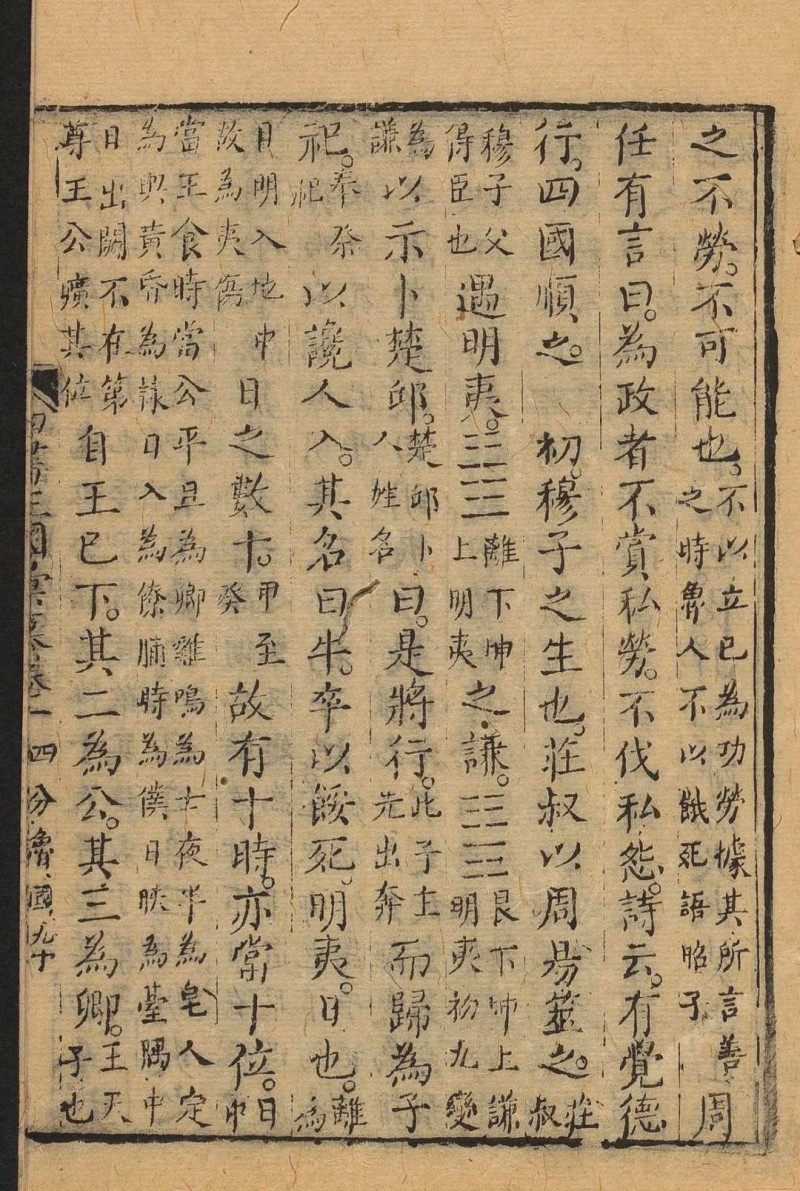 之不勞。不可能也。不以立已為功勞據其所言善之時魯人不以餓死語昭子周
任有言曰。為政者不賞私勞。不伐私怨。詩云。有覺德
行。四國順之。　初。穆子之生也。莊叔以周易筮之。莊叔
穆子父得臣也遇明夷。䷣離下坤上明夷之謙。䷎艮下坤上謙明夷初九變
為謙以示卜楚邱。楚邱卜人姓名曰。是將行。此子主先出奔而歸為子
祀。奉祭祀以讒人入。其名曰牛。卒以餒死。明夷。日也。離為
日明入地中故為夷傷日之數十。甲至癸故有十時。亦當十位。日中
當王食時當公平旦為卿雞鳴為士夜半為皂人定為輿黃昏為隸日入為僚脯時為僕日昳為臺隅中
日出闕不在第尊王公曠其位自王已下。其二為公。其三為卿。王天子也
卷一 四分魯國 九十